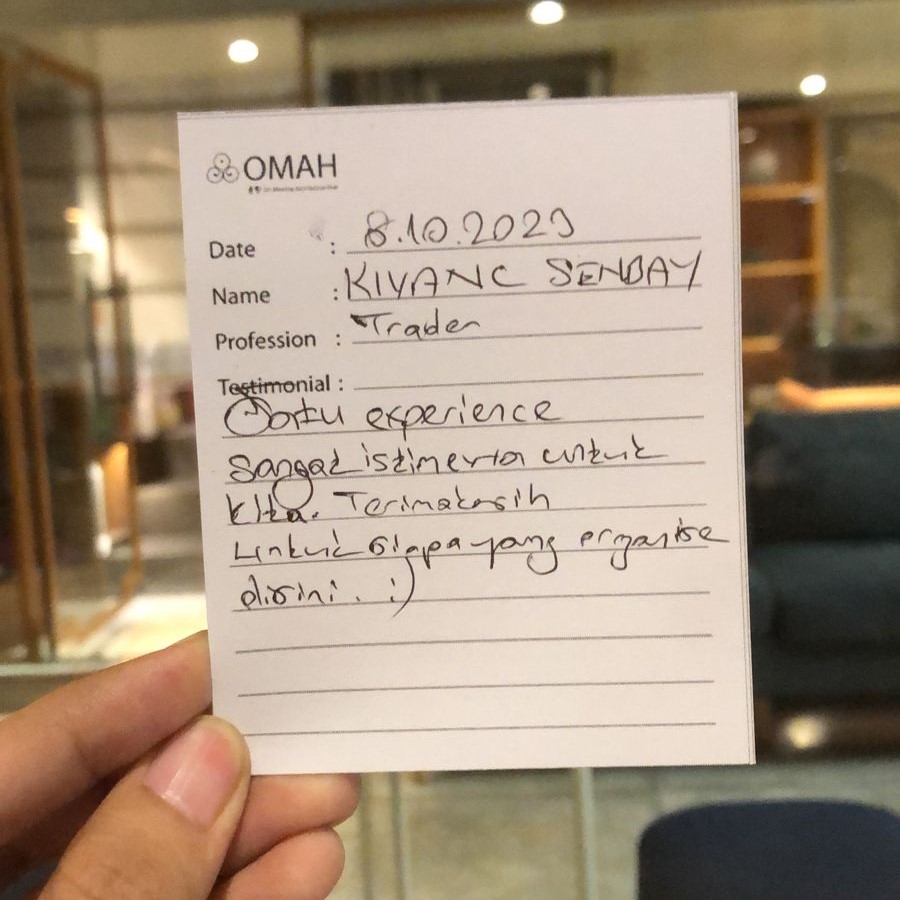 OMAH
Date : 8.10.2023
Name : KIVANC SENBAY
Profession : Trader
Testimonial :
experience
Sangat istimewa untuk
kita. Terimakasih
Untuk siapa yang organise
disini. :)